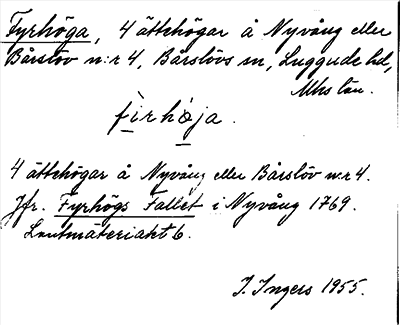 Fyrhöga, 4 ättehögar å Nyvång eller
Bårslöv n:r 4, Bårslövs sn, Luggude hd,
Mhs län.
fìrhøja.
4 ättehögar å Nyvång eller Bårslöv n:r 4.
Jfr. Fyrhögs Fallet i Nyvång 1769.
Lantmäteriakt 6.
I. Ingers 1955.